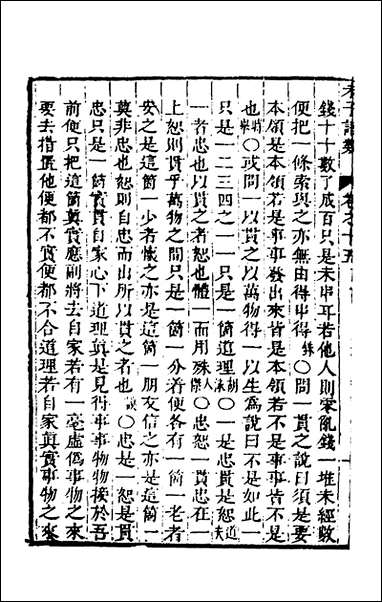 朱子語類
錢十十數了成百只是未串耳若他人則零亂錢一堆未經數
便把一條索與之亦無由得串得銖○問一貫之說曰須是要
本領是本領若是事事發出來皆是本領若不是事事皆不是
時舉○或問一以貫之以萬物得一以生爲說曰不是如此一
只是一二三四之一一只是一箇道理胡泳○一是忠貫是恕道夫
一者忠也以貫之者恕也體一而用殊人傑○忠恕一貫忠在一
上恕則貫乎萬物之間只是一箇一分着便各有一箇一老者
安之是這箇一少者懷之亦是這箇一朋友信之亦是這箇一
莫非忠也恕則自忠而出所以貫之者也謨○忠是一恕是貫
忠只是一箇眞實自家心下道理直是見得事事物物接於吾
前便只把這箇眞實應副將去自家若有一毫虛僞事物之來
要去措置他便都不實便都不合道理若自家眞實事物之來